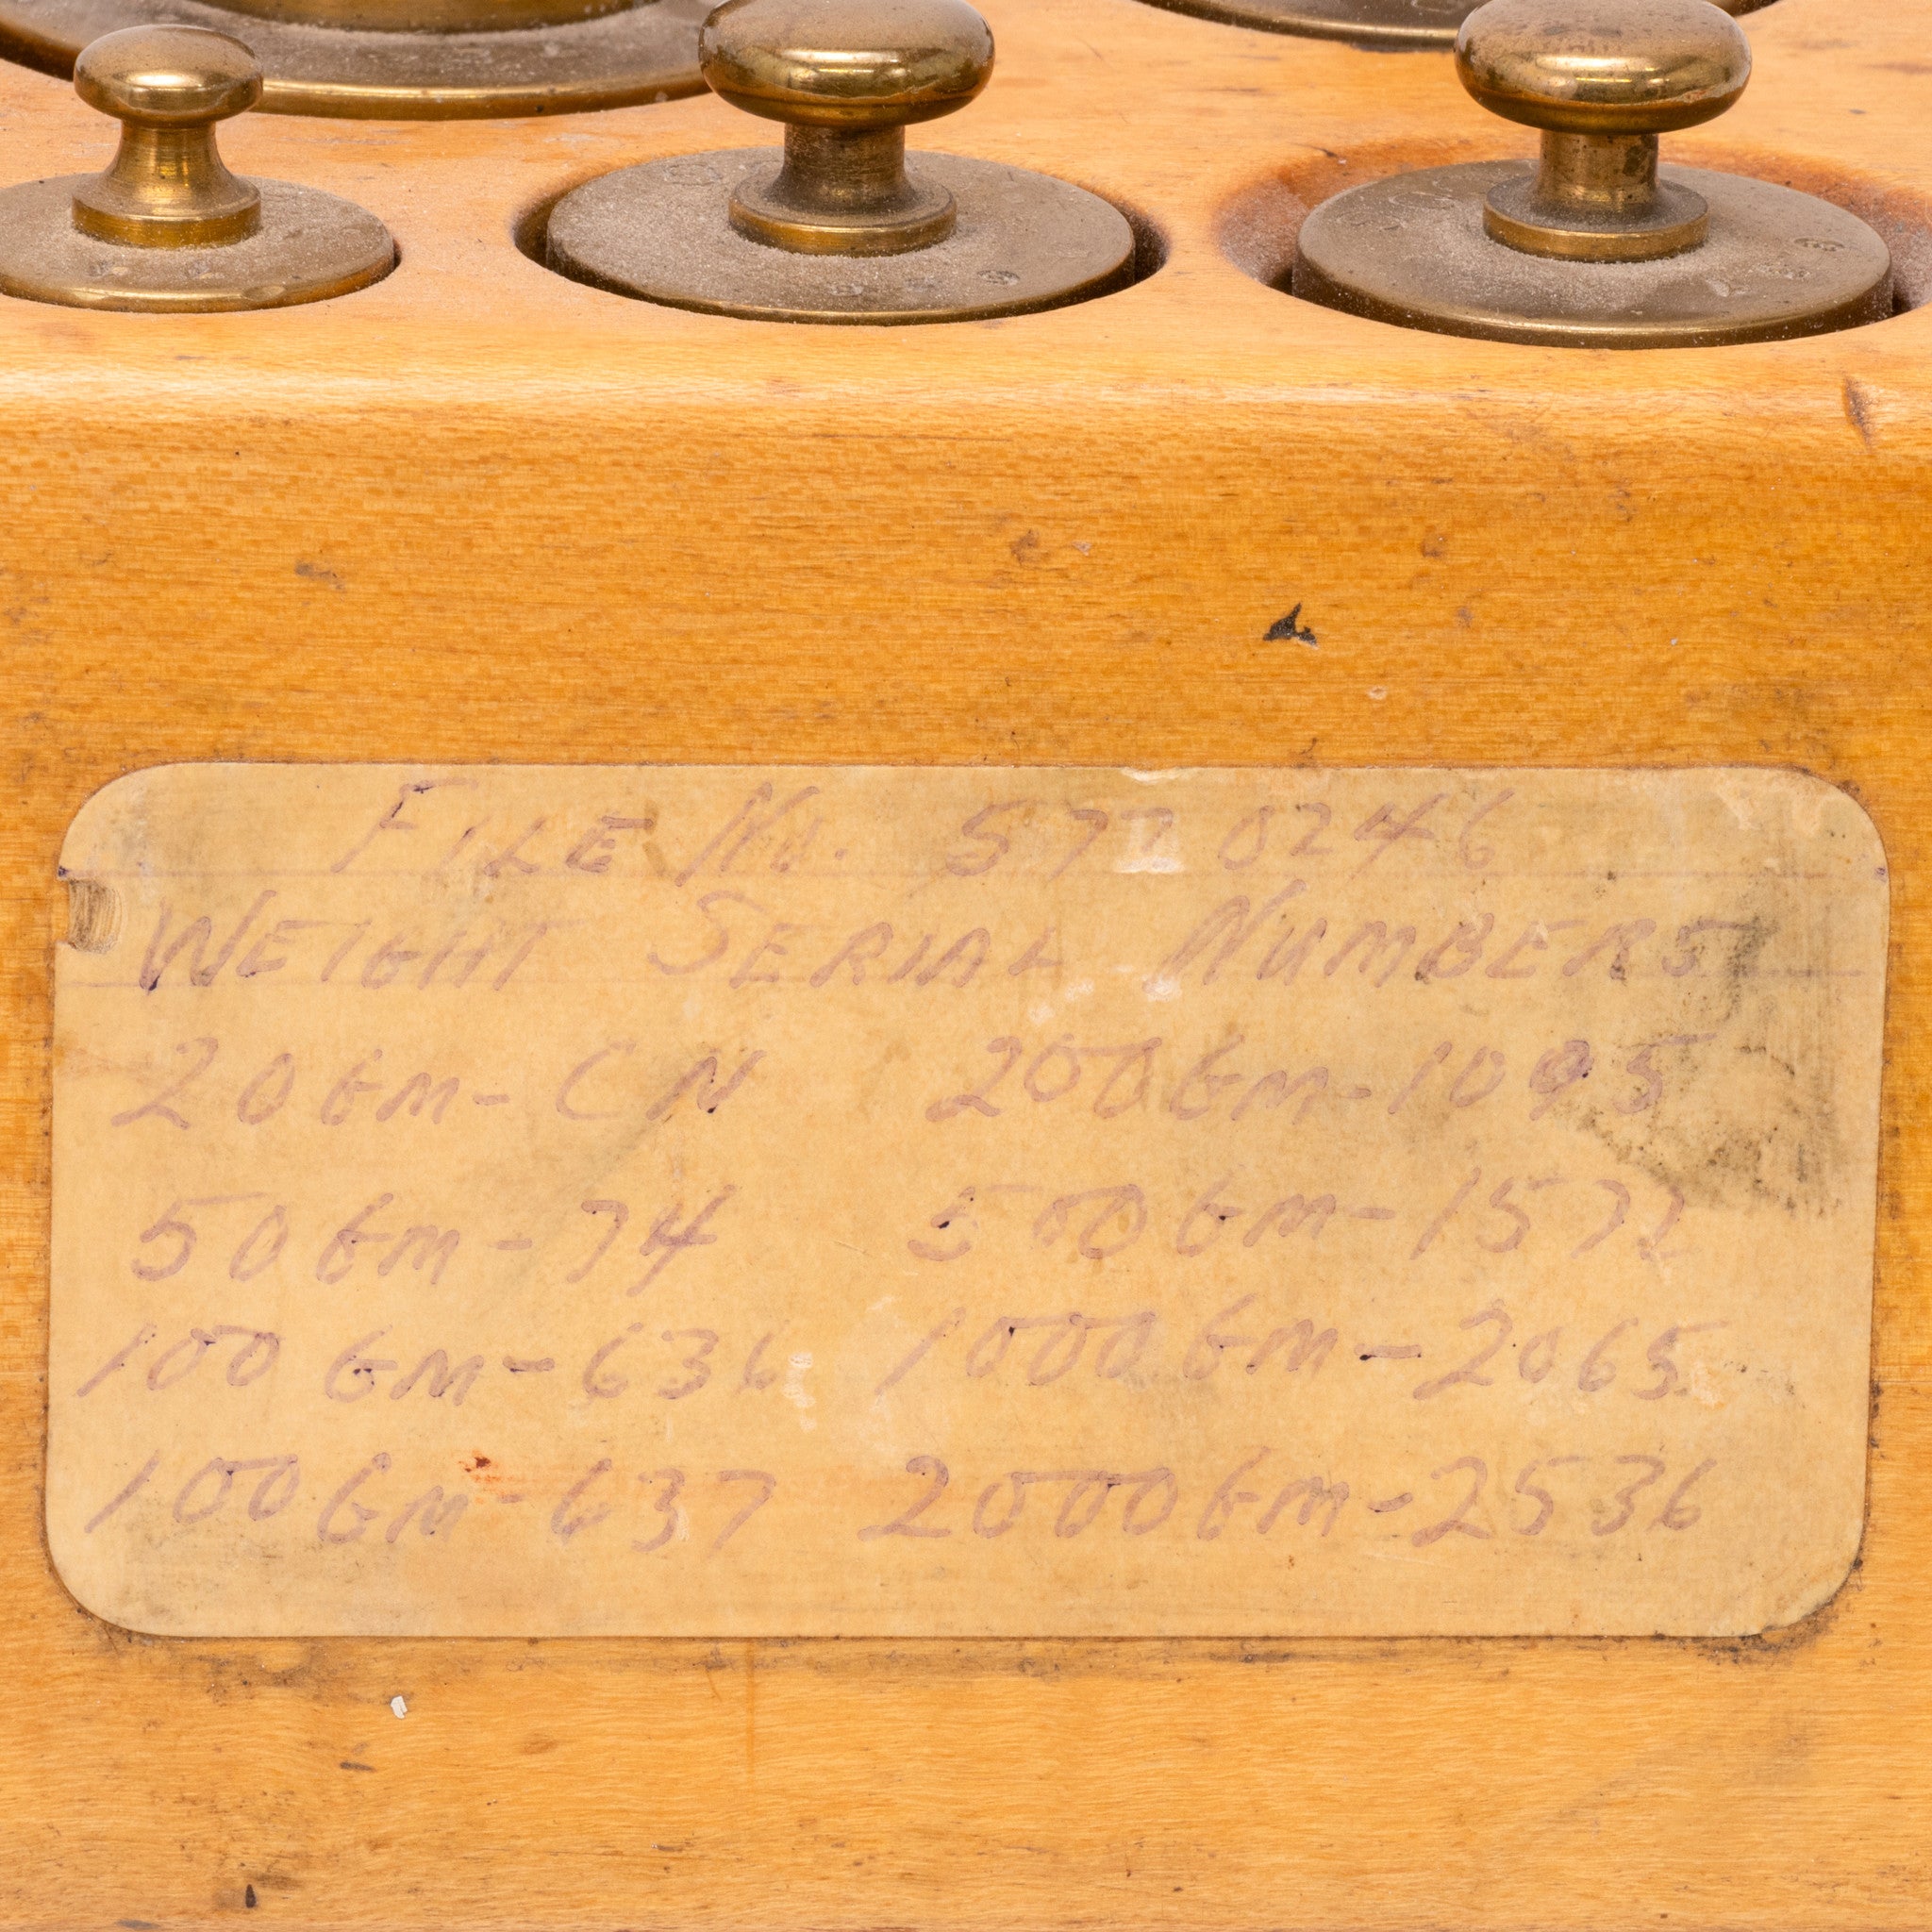 FILE No. 5770246
WEIGHT SERIAL NUMBERS
20 GM - CN 200 GM - 1095
50 GM - 74 500 GM - 1572
100 GM - 636 1000 GM - 2065
100 GM - 637 2000 GM - 2536